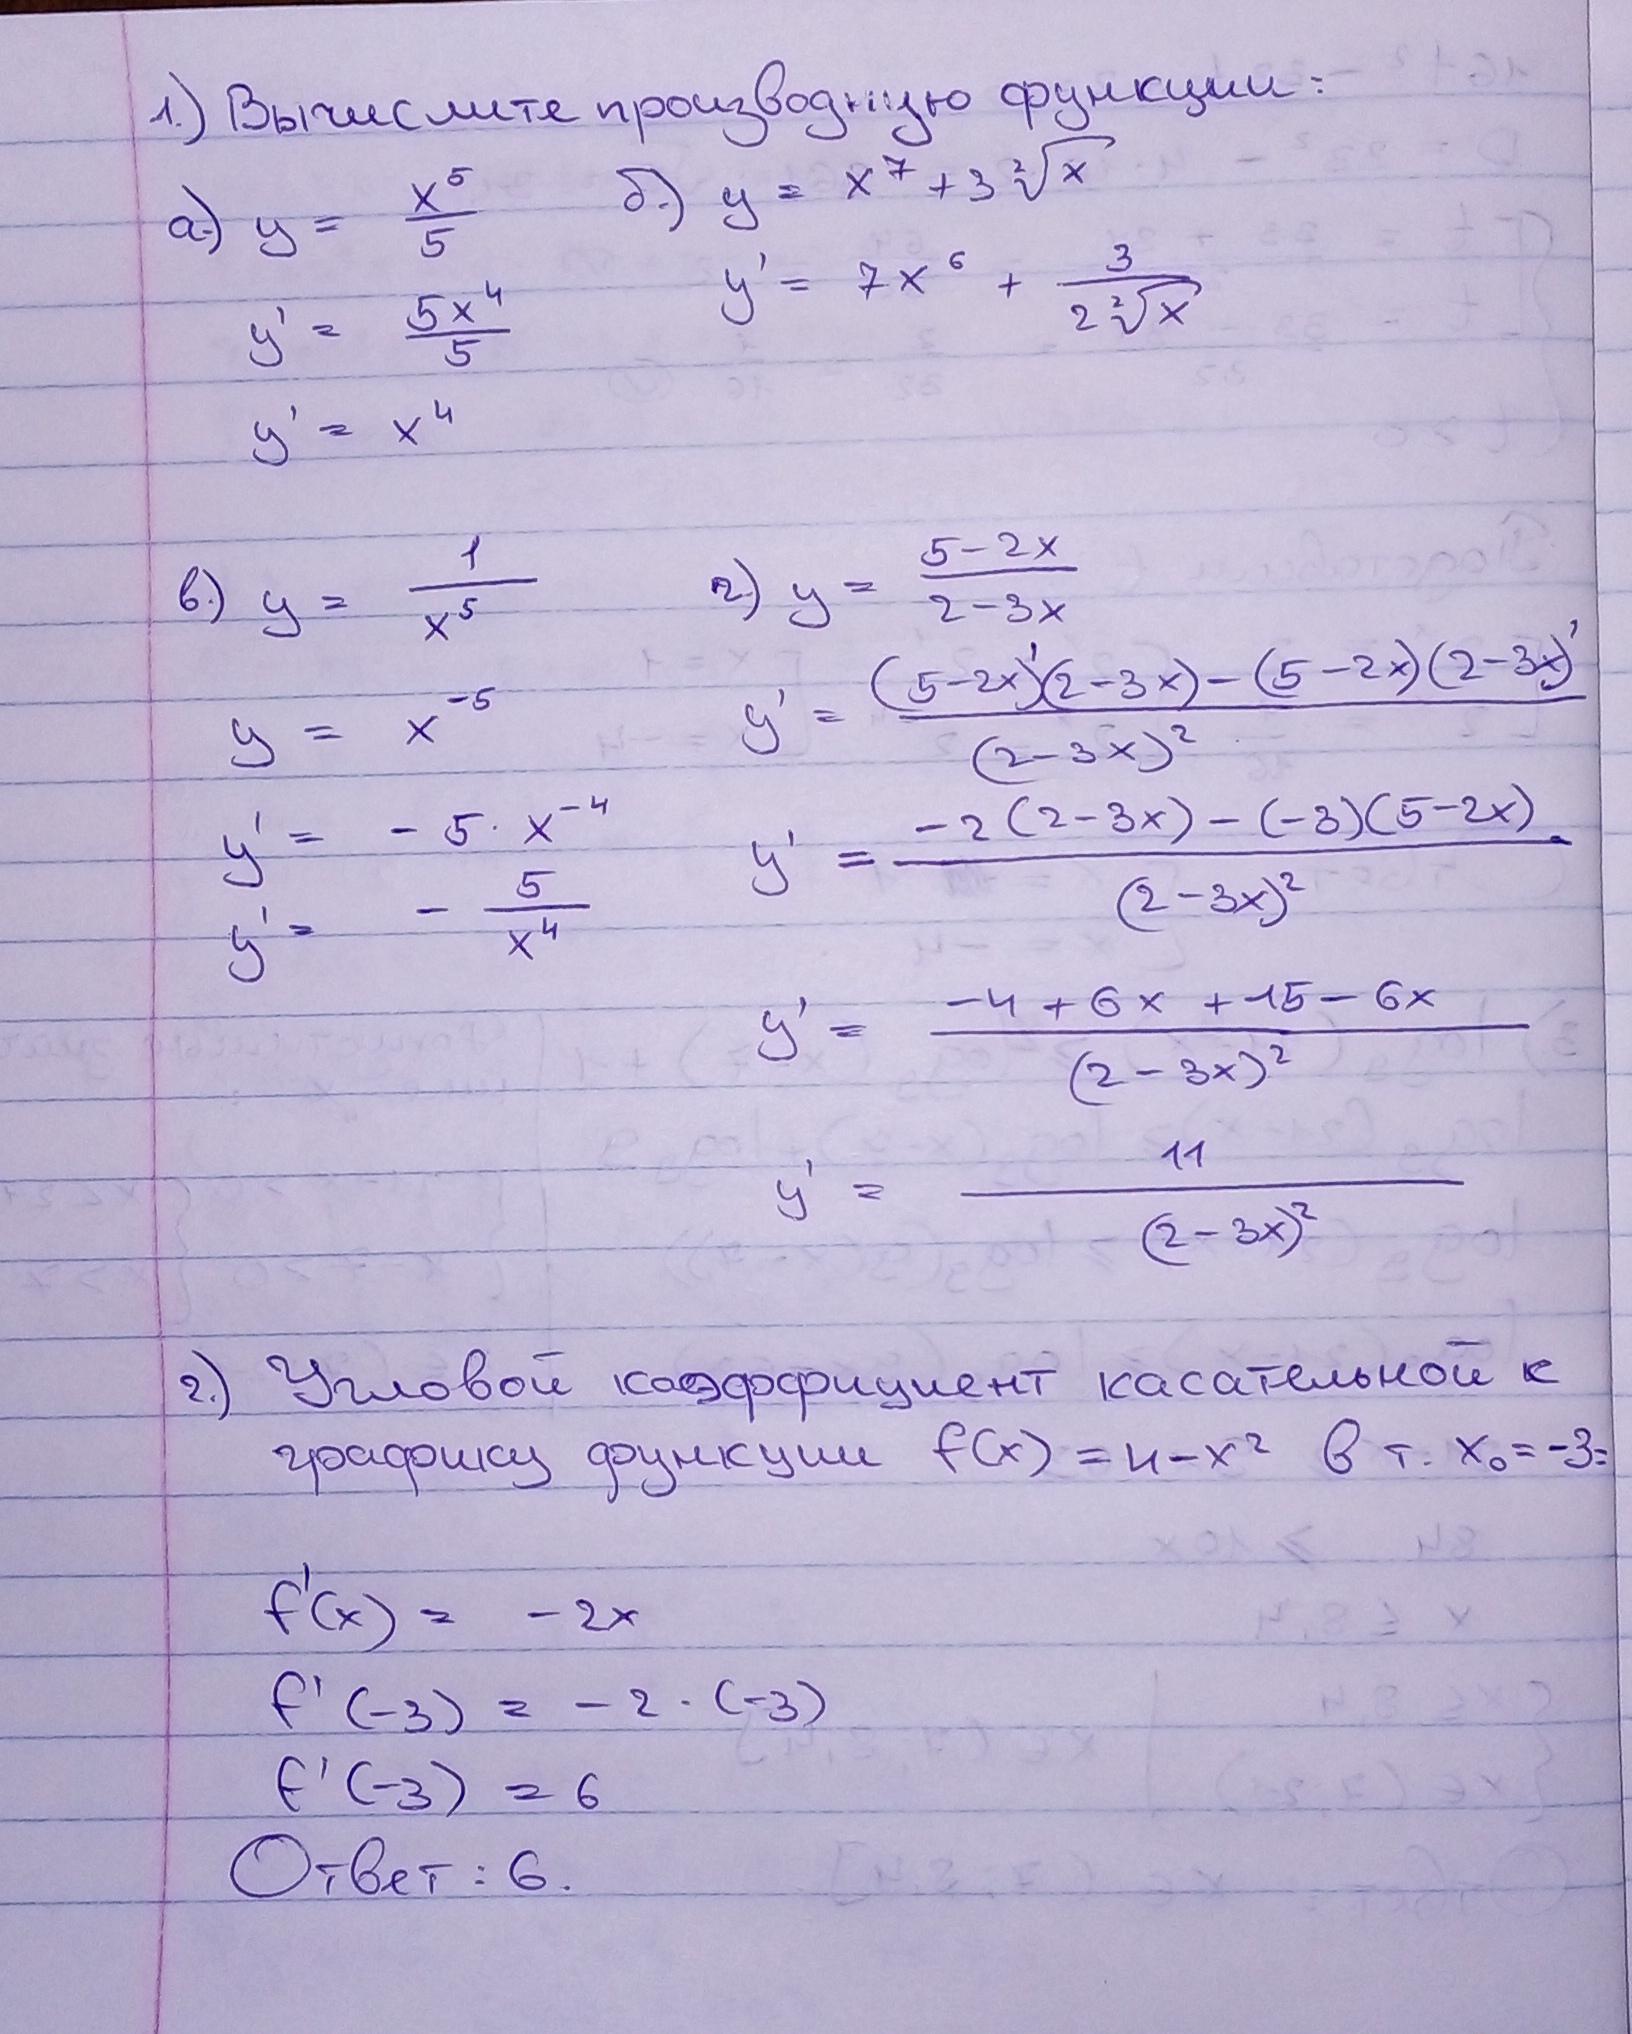 1.) Вычислите производную функции:
а.) y = x⁵/5 б.) y = x⁷ + 3 ²√x
y' = 5x⁴/5 y' = 7x⁶ + 3/(2 ²√x)
y' = x⁴
в.) y = 1/x⁵ г.) y = (5-2x)/(2-3x)
y = x⁻⁵ y' = ((5-2x)'(2-3x) - (5-2x)(2-3x)')/(2-3x)²
y' = -5 · x⁻⁴ y' = (-2(2-3x) - (-3)(5-2x))/(2-3x)²
y' = - 5/x⁴
y' = (-4 + 6x + 15 - 6x)/(2-3x)²
y' = 11/(2-3x)²
2.) Угловой коэффициент касательной к
графику функции f(x) = 4-x² в т. x₀ = -3:
f'(x) = -2x
f'(-3) = -2 · (-3)
f'(-3) = 6
Ответ: 6.